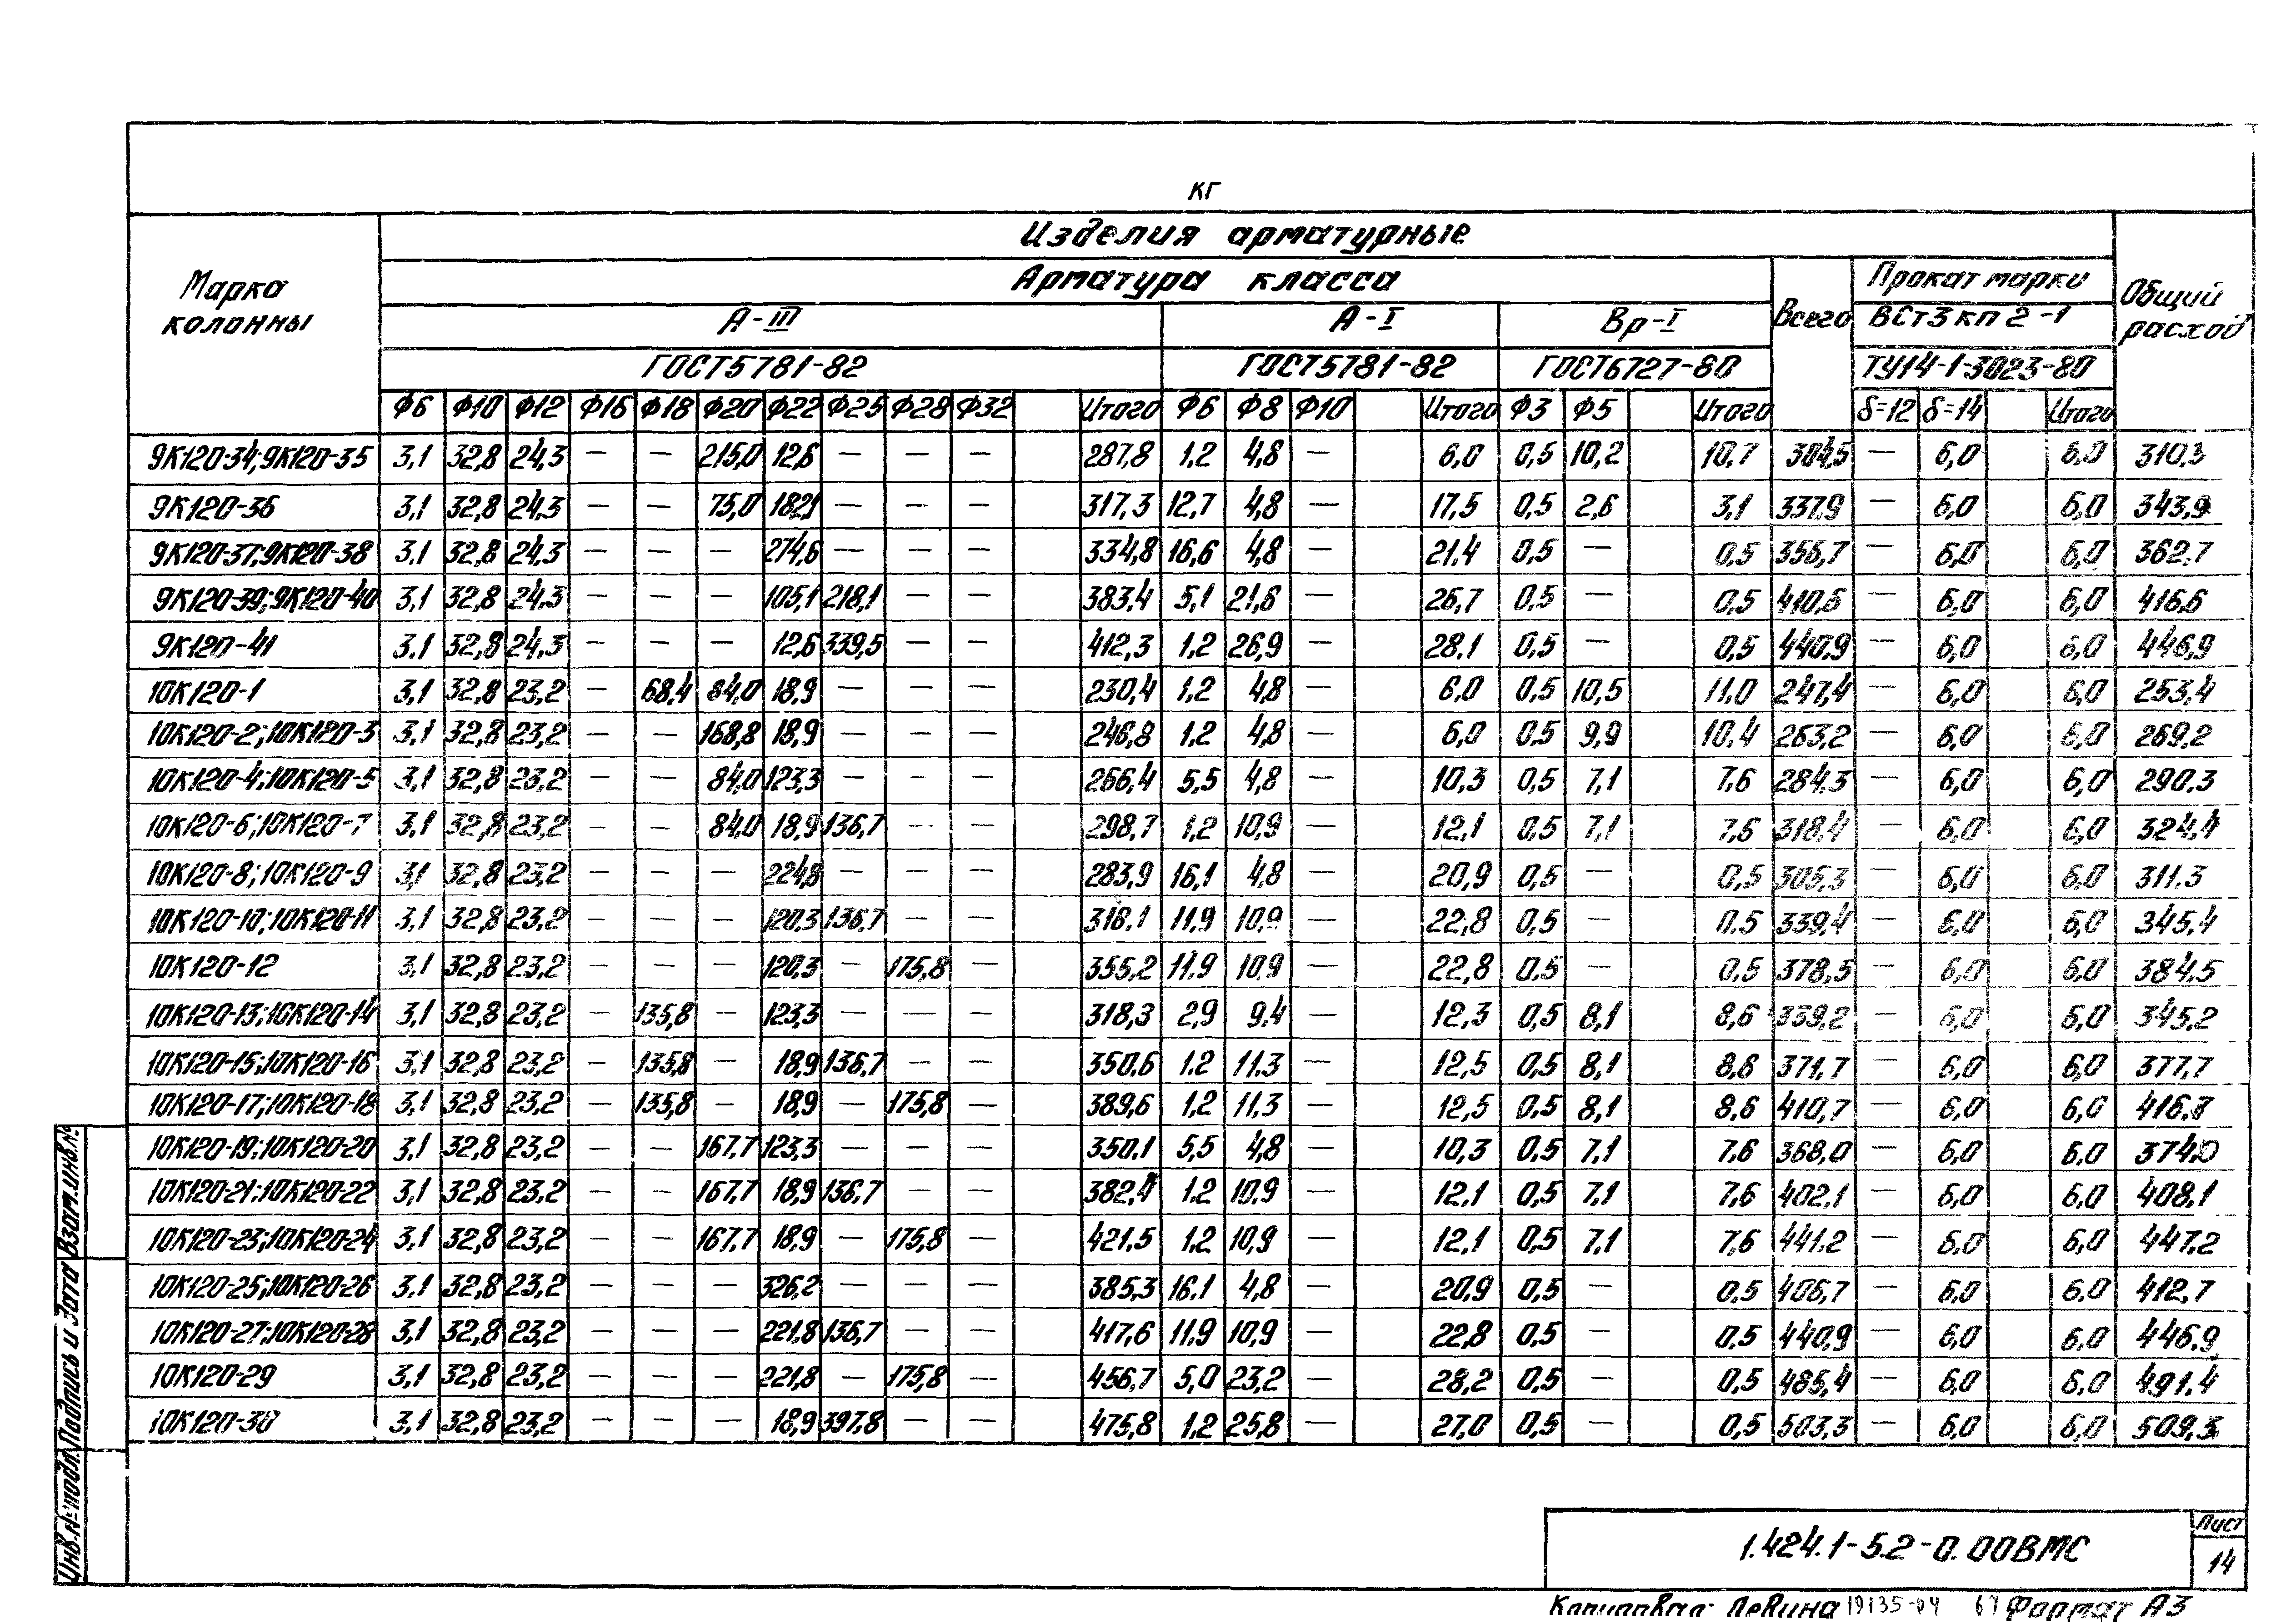 кг
Марка колонны
Изделия арматурные
Арматура класса
Всего
Прокат марки
Общий расход
А-III
А-I
Вр-I
ВСт3кп2-1
ГОСТ5781-82
ГОСТ5781-82
ГОСТ6727-80
ТУ14-1-3023-80
Ф6 Ф10 Ф12 Ф16 Ф18 Ф20 Ф22 Ф25 Ф28 Ф32 Итого Ф6 Ф8 Ф10 Итого Ф3 Ф5 Итого δ=12 δ=14 Итого
9К120-34;9К120-35 3,1 32,8 24,3 — — 215,0 12,6 — — — 287,8 1,2 4,8 — 6,0 0,5 10,2 10,7 304,5 — 6,0 6,0 310,3
9К120-36 3,1 32,8 24,3 — — 75,0 182,1 — — — 317,3 12,7 4,8 — 17,5 0,5 2,6 3,1 337,9 — 6,0 6,0 343,9
9К120-37;9К120-38 3,1 32,8 24,3 — — — 274,6 — — — 334,8 16,6 4,8 — 21,4 0,5 — 0,5 356,7 — 6,0 6,0 362,7
9К120-39;9К120-40 3,1 32,8 24,3 — — — 105,1 218,1 — — 383,4 5,1 21,6 — 26,7 0,5 — 0,5 410,6 — 6,0 6,0 416,6
9К120-41 3,1 32,8 24,3 — — — 12,6 339,5 — — 412,3 1,2 26,9 — 28,1 0,5 — 0,5 440,9 — 6,0 6,0 446,9
10К120-1 3,1 32,8 23,2 — 68,4 84,0 18,9 — — — 230,4 1,2 4,8 — 6,0 0,5 10,5 11,0 247,4 — 6,0 6,0 253,4
10К120-2;10К120-3 3,1 32,8 23,2 — — 168,8 18,9 — — — 246,8 1,2 4,8 — 6,0 0,5 9,9 10,4 263,2 — 6,0 6,0 269,2
10К120-4;10К120-5 3,1 32,8 23,2 — — 84,0 123,3 — — — 266,4 5,5 4,8 — 10,3 0,5 7,1 7,6 284,3 — 6,0 6,0 290,3
10К120-6;10К120-7 3,1 32,8 23,2 — — 84,0 18,9 136,7 — — 298,7 1,2 10,9 — 12,1 0,5 7,1 7,6 318,4 — 6,0 6,0 324,4
10К120-8;10К120-9 3,1 32,8 23,2 — — — 224,8 — — — 283,9 16,1 4,8 — 20,9 0,5 — 0,5 305,3 — 6,0 6,0 311,3
10К120-10;10К120-11 3,1 32,8 23,2 — — — 120,3 136,7 — — 316,1 11,9 10,9 — 22,8 0,5 — 0,5 339,4 — 6,0 6,0 345,4
10К120-12 3,1 32,8 23,2 — — — 120,3 — 175,8 — 355,2 11,9 10,9 — 22,8 0,5 — 0,5 378,5 — 6,0 6,0 384,5
10К120-13;10К120-14 3,1 32,8 23,2 — 135,8 — 123,3 — — — 318,3 2,9 9,4 — 12,3 0,5 8,1 8,6 339,2 — 6,0 6,0 345,2
10К120-15;10К120-16 3,1 32,8 23,2 — 135,8 — 18,9 136,7 — — 350,6 1,2 11,3 — 12,5 0,5 8,1 8,6 371,7 — 6,0 6,0 377,7
10К120-17;10К120-18 3,1 32,8 23,2 — 135,8 — 18,9 — 175,8 — 389,6 1,2 11,3 — 12,5 0,5 8,1 8,6 410,7 — 6,0 6,0 416,7
10К120-19;10К120-20 3,1 32,8 23,2 — — 167,7 123,3 — — — 350,1 5,5 4,8 — 10,3 0,5 7,1 7,6 368,0 — 6,0 6,0 374,0
10К120-21;10К120-22 3,1 32,8 23,2 — — 167,7 18,9 136,7 — — 382,4 1,2 10,9 — 12,1 0,5 7,1 7,6 402,1 — 6,0 6,0 408,1
10К120-23;10К120-24 3,1 32,8 23,2 — — 167,7 18,9 — 175,8 — 421,5 1,2 10,9 — 12,1 0,5 7,1 7,6 441,2 — 6,0 6,0 447,2
10К120-25;10К120-26 3,1 32,8 23,2 — — — 326,2 — — — 385,3 16,1 4,8 — 20,9 0,5 — 0,5 406,7 — 6,0 6,0 412,7
10К120-27;10К120-28 3,1 32,8 23,2 — — — 221,8 136,7 — — 417,6 11,9 10,9 — 22,8 0,5 — 0,5 440,9 — 6,0 6,0 446,9
10К120-29 3,1 32,8 23,2 — — — 221,8 — 175,8 — 456,7 5,0 23,2 — 28,2 0,5 — 0,5 485,4 — 6,0 6,0 491,4
10К120-30 3,1 32,8 23,2 — — — 18,9 397,8 — — 475,8 1,2 25,8 — 27,0 0,5 — 0,5 503,3 — 6,0 6,0 509,3
Инв.№подл. Подпись и дата Взам.инв.№
1.424.1-5.2-0.00ВМС
Лист
14
Копировал: Левина 19135-04 67 Формат А3